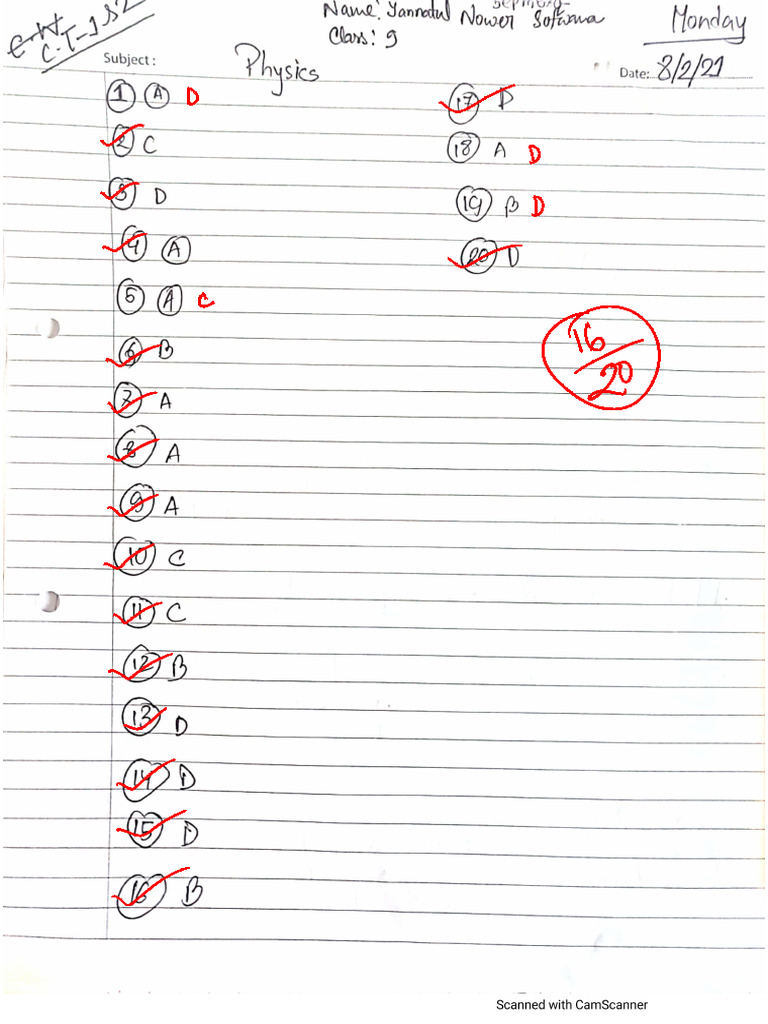 C.W
C.T-1
Name: Jannatul Nower
Class: 9
Monday
Subject: Physics
Date: 8/2/21
1 A D
2 C
3 D
4 A
5 A C
6 B
7 A
8 A
9 A
10 C
11 C
12 B
13 D
14 D
15 D
16 B
17 D
18 A D
19 B D
20 D
16/20
Scanned with CamScanner